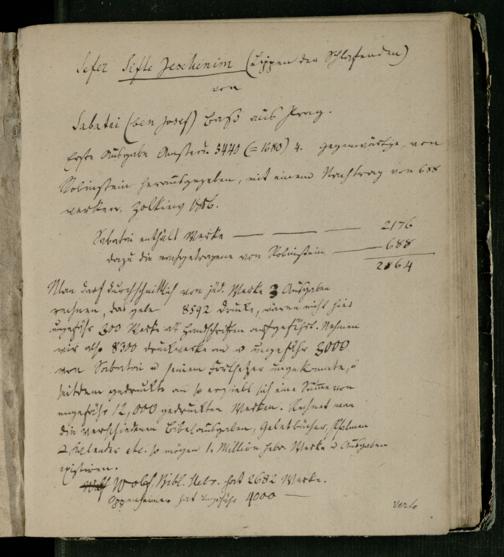 Sefer Sifte Jeschenim (Lippen der Schlafenden)
von
Sabatai (ben Josef) Bass aus Prag.
Erste Ausgabe Amsterd. 5440 (= 1680) 4. Gegenwärtige, von
Rubinstein herausgegeben, mit einem Nachtrag von 688
Werken. Zolkiew 1806.
Sabatai enthält Werke — — — 2176
dazu die nachgetragene von Rubinstein — 688
2864
Man darf durchschnittlich von jed. Werke 3 Ausgaben
rechnen, das gebe 8592 Drucke, wären nicht hier
ungefähr 300 Werke als Handschriften aufgeführt. Nehmen
wir also 8300 Druckwerke an u ungefähr 3000
von Sabatai u seinem Fortsetzer ungekannte, u
seitdem gedruckte an so ergiebt sich eine Summe von
ungefähr 12,000 gedruckten Werken. Rechnet man
die verschiedenen Bibelausgaben, Gebetbücher, Psalmen
Kalender etc. so mögen 1. Million hebr Werke u Ausgaben
existiren.
Wolf Bibl. Hebr. hat 2682 Werke.
Oppenheimer hat ungefähr 4000 —